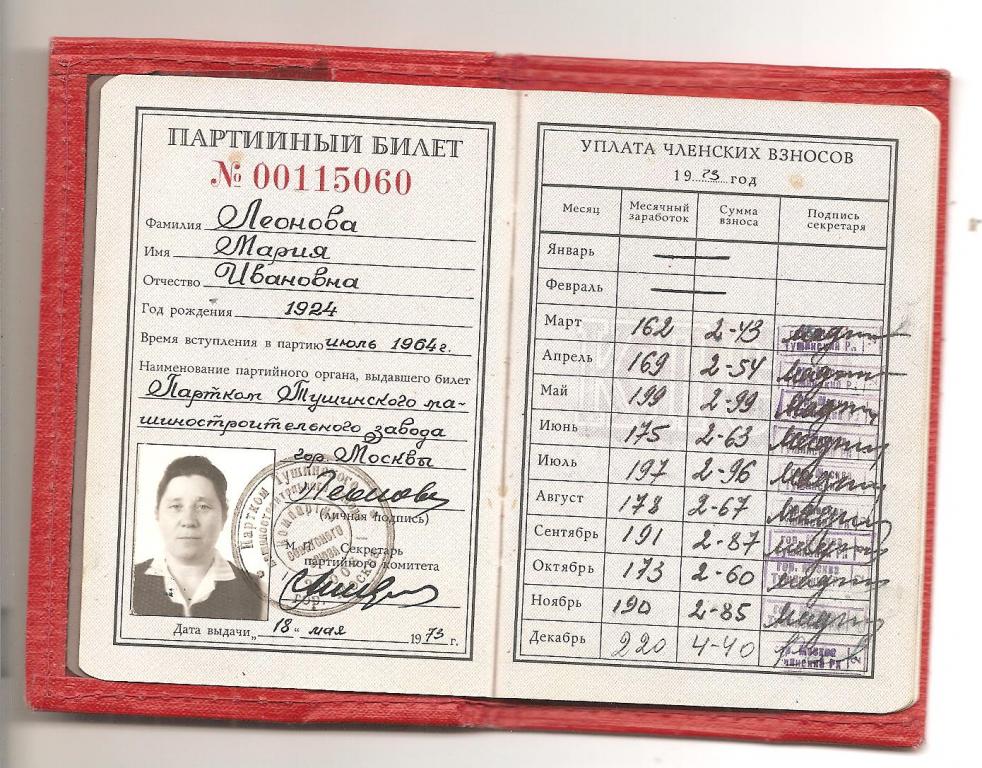 ПАРТИЙНЫЙ БИЛЕТ
№ 00115060
Фамилия Леонова
Имя Мария
Отчество Ивановна
Год рождения 1924
Время вступления в партию июль 1964 г.
Наименование партийного органа, выдавшего билет
Партком Тушинского ма-
шиностроительного завода
гор Москвы
(личная подпись)
М. П. Секретарь
партийного комитета
Дата выдачи „ 18 “ мая 1973 г.
УПЛАТА ЧЛЕНСКИХ ВЗНОСОВ
1973 год
Месяц Месячный заработок Сумма взноса Подпись секретаря
Январь —
Февраль —
Март 162 2-43
Апрель 169 2-54
Май 199 2-99
Июнь 175 2-63
Июль 197 2-96
Август 178 2-67
Сентябрь 191 2-87
Октябрь 173 2-60
Ноябрь 190 2-85
Декабрь 220 4-40